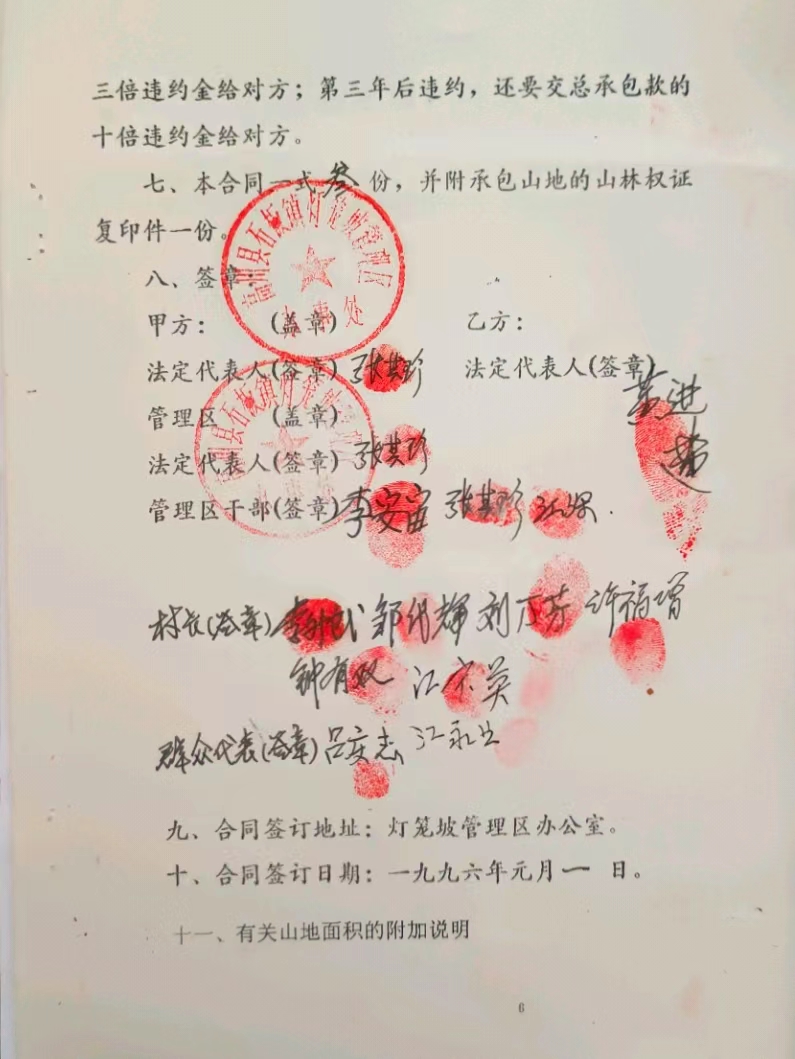 三倍违约金给对方；第三年后违约，还要交总承包款的
十倍违约金给对方。
七、本合同一式叁份，并附承包山地的山林权证
复印件一份。
八、签章：
甲方： (盖章) 乙方：
法定代表人(签章) 张其珍 法定代表人(签章)
管理区 (盖章)
法定代表人(签章) 张其珍
管理区干部(签章) 李安富 张其珍
村长(签章) 刘 许福增
钟有双 江
群众代表(签章) 吕 志 江永
九、合同签订地址：灯笼坡管理区办公室。
十、合同签订日期：一九九六年元月一日。
十一、有关山地面积的附加说明
6